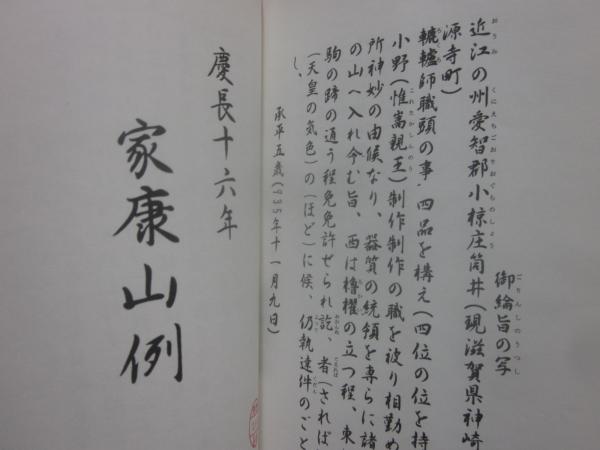 御綸旨の写
ごりんしのうつし
近江の州愛智郡小椋庄筒井(現滋賀県神崎
源寺町)
轆轤師職頭の事、四品を構え(四位の位を持
小野(惟喬親王)制作制作の職を被り相勤め
これたかしんのう
所神妙の由候なり、器質の統領を専らに諸
の山へ入れ令む旨、西は櫓櫂の立つ程、東
駒の蹄の通う程免免許せられ訖、者(されば
(天皇の気色)の(ほど)に候、仍執達件のごと
し、
承平五歳(935年十一月九日)
慶長十六年
家康山例